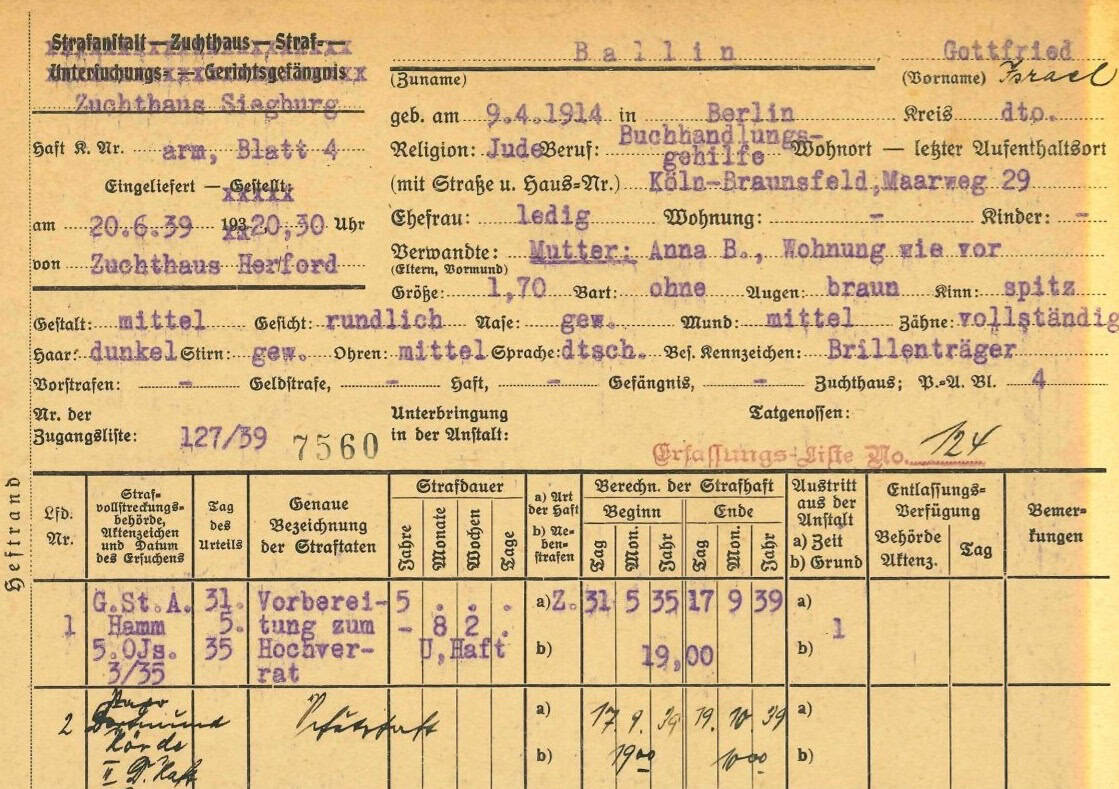 Strafanstalt — Zuchthaus — Straf-
Untersuchungs- — Gerichtsgefängnis
Zuchthaus Siegburg
Haft K. Nr. arm, Blatt 4
Eingeliefert — Gestellt:
am 20.6.39 193 20,30 Uhr
von Zuchthaus Herford
Ballin Gottfried
(Zuname) (Vorname) Israel
geb. am 9.4.1914 in Berlin Kreis dto.
Religion: Jude Beruf: Buchhandlungs-
gehilfe Wohnort — letzter Aufenthaltsort
(mit Straße u. Haus-Nr.) Köln-Braunsfeld, Maarweg 29
Ehefrau: ledig Wohnung: - Kinder: -
Verwandte: Mutter: Anna B., Wohnung wie vor
(Eltern, Vormund)
Größe: 1,70 Bart: ohne Augen: braun Kinn: spitz
Gestalt: mittel Gesicht: rundlich Nase: gew. Mund: mittel Zähne: vollständig
Haar: dunkel Stirn: gew. Ohren: mittel Sprache: dtsch. Bes. Kennzeichen: Brillenträger
Vorstrafen: - Geldstrafe, - Haft, - Gefängnis, - Zuchthaus; P.-A. Bl. 4
Nr. der
Zugangsliste: 127/39 7560
Unterbringung
in der Anstalt:
Tatgenossen:
Erfassungs-Liste No. 124
Heftrand
Lfd.
Nr.
Straf-
vollstreckungs-
behörde,
Aktenzeichen
und Datum
des Ersuchens
Tag
des
Urteils
Genaue
Bezeichnung
der Straftaten
Strafdauer
Jahre
Monate
Wochen
Tage
a) Art
der Haft
b) Ne-
ben-
strafen
Berechn. der Strafhaft
Beginn Ende
Tag Mon. Jahr Tag Mon. Jahr
Austritt
aus der
Anstalt
a) Zeit
b) Grund
Entlassungs-
Verfügung
Behörde
Aktenz.
Tag
Bemer-
kungen
1
G.St.A.
Hamm
5.OJs.
3/35
31.
5.
35
Vorberei-
tung zum
Hochver-
rat
5 . . .
- 8 2 .
U,Haft
a) Z. 31 5 35 17 9 39 a)
1
b) 19,00 b)
2
Dortmund
Hörde
Schutzhaft
a) 17. 9. 39 19. 10. 39 a)
b) 19 00 10 00 b)